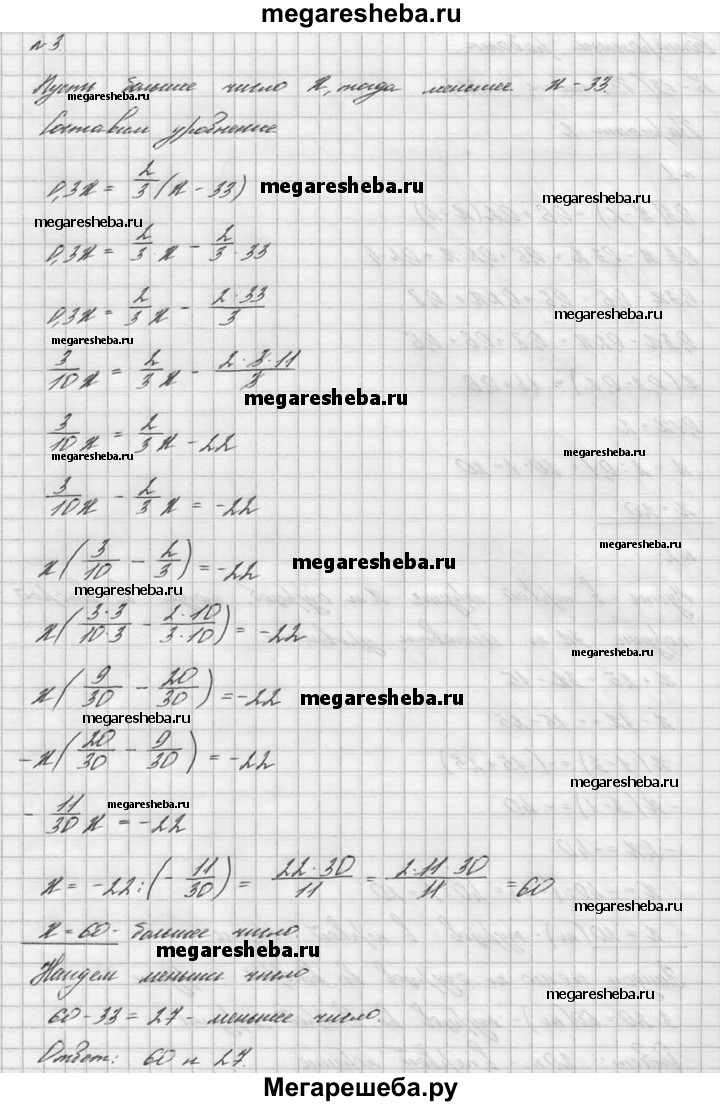 megaresheba.ru
№3.
Пусть большее число x, тогда меньшее x - 33.
megaresheba.ru
Составим уравнение
0,3x = 2/3 (x - 33)
megaresheba.ru
megaresheba.ru
megaresheba.ru
0,3x = 2/3 · x - 2/3 · 33
0,3x = 2/3 x - 2·33/3
megaresheba.ru
megaresheba.ru
3/10 x = 2/3 x - 2·3·11/3
megaresheba.ru
3/10 x = 2/3 x - 22
megaresheba.ru
megaresheba.ru
3/10 x - 2/3 x = -22
megaresheba.ru
x(3/10 - 2/3) = -22
megaresheba.ru
megaresheba.ru
x(3·3/10·3 - 2·10/3·10) = -22
megaresheba.ru
x(9/30 - 20/30) = -22
megaresheba.ru
megaresheba.ru
-x(20/30 - 9/30) = -22
megaresheba.ru
megaresheba.ru
- 11/30 x = -22
x = -22 : (- 11/30) = 22·30/11 = 2·11·30/11 = 60
megaresheba.ru
x = 60 - большее число
megaresheba.ru
Найдем меньшее число
megaresheba.ru
60 - 33 = 27 - меньшее число.
Ответ: 60 и 27.
Мегарешеба.ру